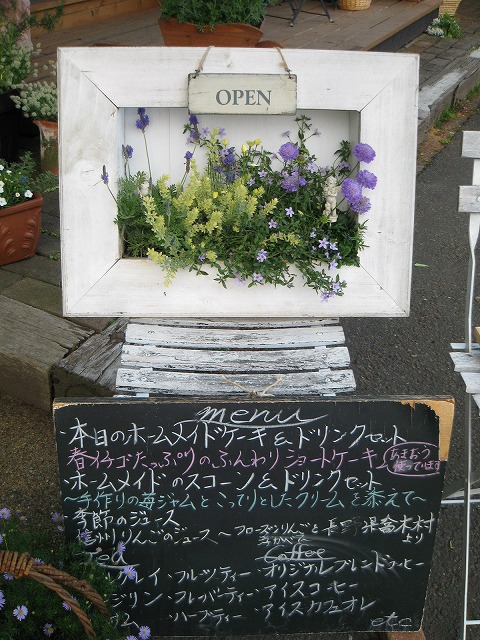 OPEN
menu
・本日のホームメイドケーキ＆ドリンクセット
春イチゴたっぷりのふんわりショートケーキ
あまおう
使ってます
・ホームメイドのスコーン＆ドリンクセット
～手作りの苺ジャムとこってりとしたクリームを添えて～
・季節のジュース
信州りんごのジュース～フローズンりんごと長野県
木村より
Tea
Coffee
グレイ・フルーツティー
オリジナルブレンドコーヒー
ジリン・フレーバーティー
アイスコーヒー
ハーブティー
アイスカフェオレ
etc